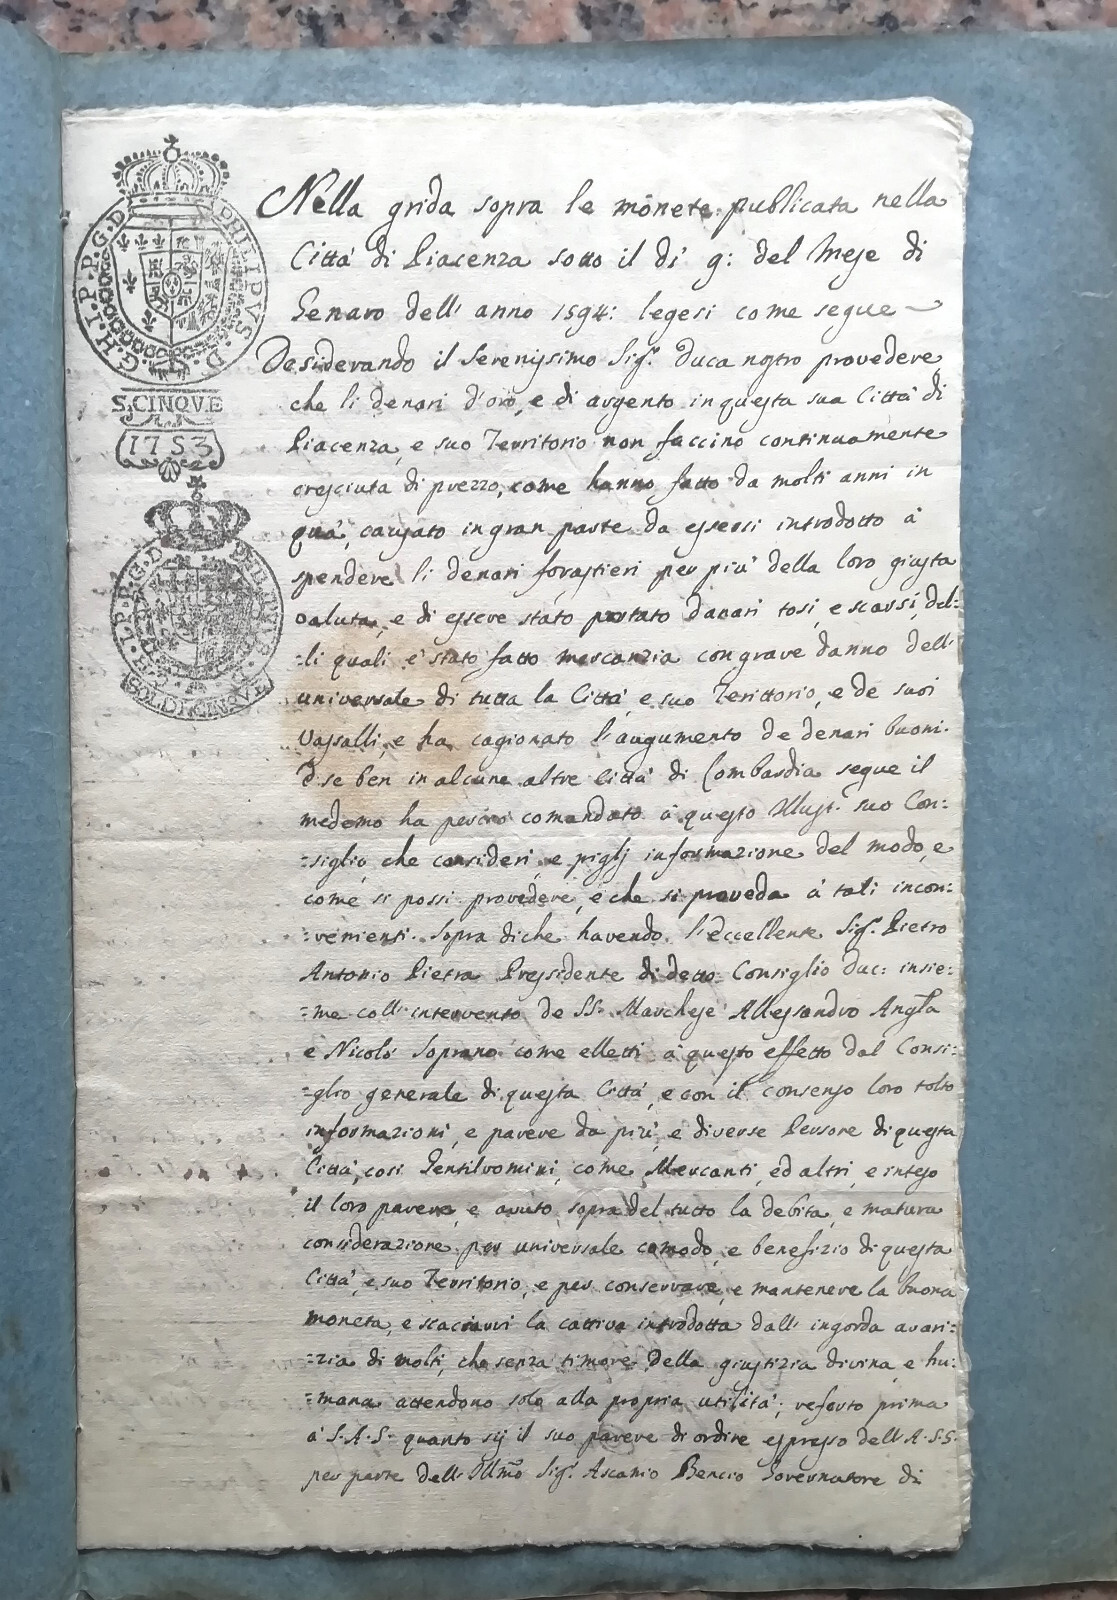 PHILIPVS·D·G·H·I·P·P·G·D
S.CINQVE
1753
PHILIPPVS
SOLDI CINQVE
Nella grida sopra le monete publicata nella
Città di Piacenza sotto il dì 9: del Mese di
Genaro dell' anno 1594: legesi come segue
Desiderando il Serenissimo Sig.r Duca nostro provedere,
che li denari d'oro, e di argento in questa sua Città di
Piacenza, e suo Territorio non faccino continuamente
cresciuta di prezzo, come hanno fatto da molti anni in
quà, causato in gran parte da essersi introdotto à
spendere li denari forastieri per più della loro giusta
valuta, e di essere stato portato danari tosi, e scarsi, del=
=li quali è stato fatto mercanzia con grave danno dell'
universale di tutta la Città, e suo Teritorio, e de suoi
Vassalli, e ha cagionato l'augumento de denari buoni.
E se ben in alcune altre Città di Lombardia segue il
medemo ha perciò comandato à questo Illust. suo Con=
=siglio, che consideri, e piglj informazione del modo, e
come si possi provedere, e che si proveda à tali incon=
=venienti. Sopra di che havendo l'eccellente Sig.r Pietro
Antonio Pietra Pressidente di detto Consiglio duc: insie=
=me coll'intervento de SS.ri Marchese Allessandro Ang.la
e Nicolò Soprano come elletti à questo effetto dal Consi=
=glio generale di questa Città, e con il consenso loro tolto
informazioni, e parere da più, e diverse Persone di questa
Città, così Gentiluomini, come Mercanti, ed altri, e inteso
il loro parere, e avuto sopra del tutto la debita, e matura
considerazione per universale comodo, e benefizio di questa
Città, e suo Territorio, e per conservare, e mantenere la buona
moneta, e scaciarvi la cattiva introdotta dall' ingorda avari=
=zia di molti, che senza timore della giustizia divina, e hu=
=mana attendono solo alla propria utilità; referto prima
à S.A.S. quanto sij il suo parere di ordine espresso dell'A.S.S.
per parte dell' Illmo Sig.r Ascanio Bencio Governatore di